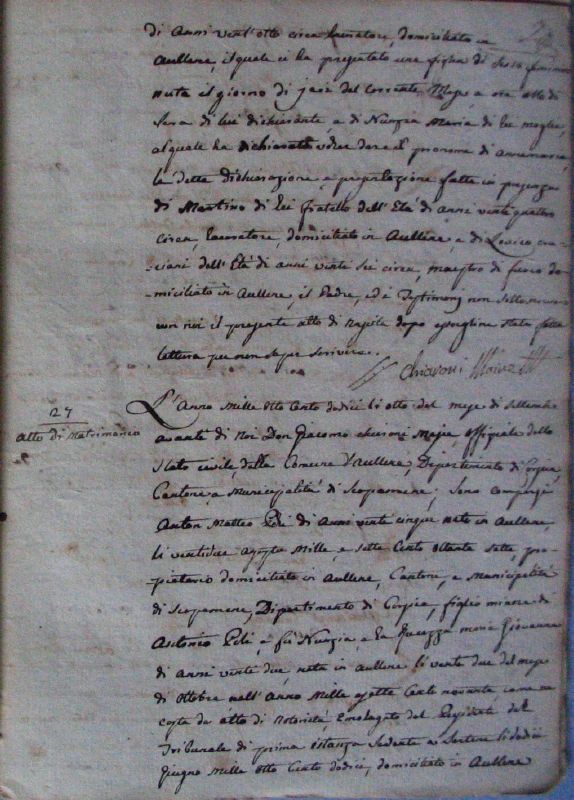 di Anni vent'otto circa Lavoratore, domiciliato in
Aullene, il quale ci ha presentato una figlia di sesso feminino
nata il giorno di jeri del corrente Mese a ore otto di
sera di lui dichiarante, e di Nunzia Maria di lui moglie,
al quale ha dichiarato voler dare il pronome di Annamaria
le dette dichiarazione, e presentazione fatte in presenza
di Martino di lui fratello dell'Età di anni venti quattro
circa, Lavoratore, domiciliato in Aullene, e di Lovico
-ciani dell'Età di anni venti sei circa, maestro di ferro do-
-miciliato in Aullene, il Padre, ed i Testimonj non
con noi il presente atto di dopo essergliene stata fatta
lettura per non saper scrivere..
Chiaroni Maire
27
Atto di Matrimonio
L'Anno Mille Otto Cento dodici li otto del mese di settembre
avanti di Noi Don Giacomo chiaroni Meja, Offiziale dello
Stato civile, della Comune d'Aullene, Dipartimento di Corsica,
Cantone, a Municipalità di Scopamene, Sono comparsi
Anton Matteo di Anni venti cinque nato in Aullene,
li ventidue agosto Mille, e sette Cento Ottanta sette, pro-
-pietario domiciliato in Aullene, Cantone, e Municipalità
di Scopamene, Dipartimento di Corsica, figlio minore di
Antonio e fù Nunzia, e la Ragazza maria Giovanna
di anni venti due, nata in Aullene li vente due del mese
di Ottobre nell'Anno Mille e sette Cento novanta come ne
costa da atto di Notorietà, Emologato dal Presidente del
Tribunale di prima istanza Sedente a Sartene li dodici
Giugno Mille Otto Cento dodici, domiciliato in Aullene